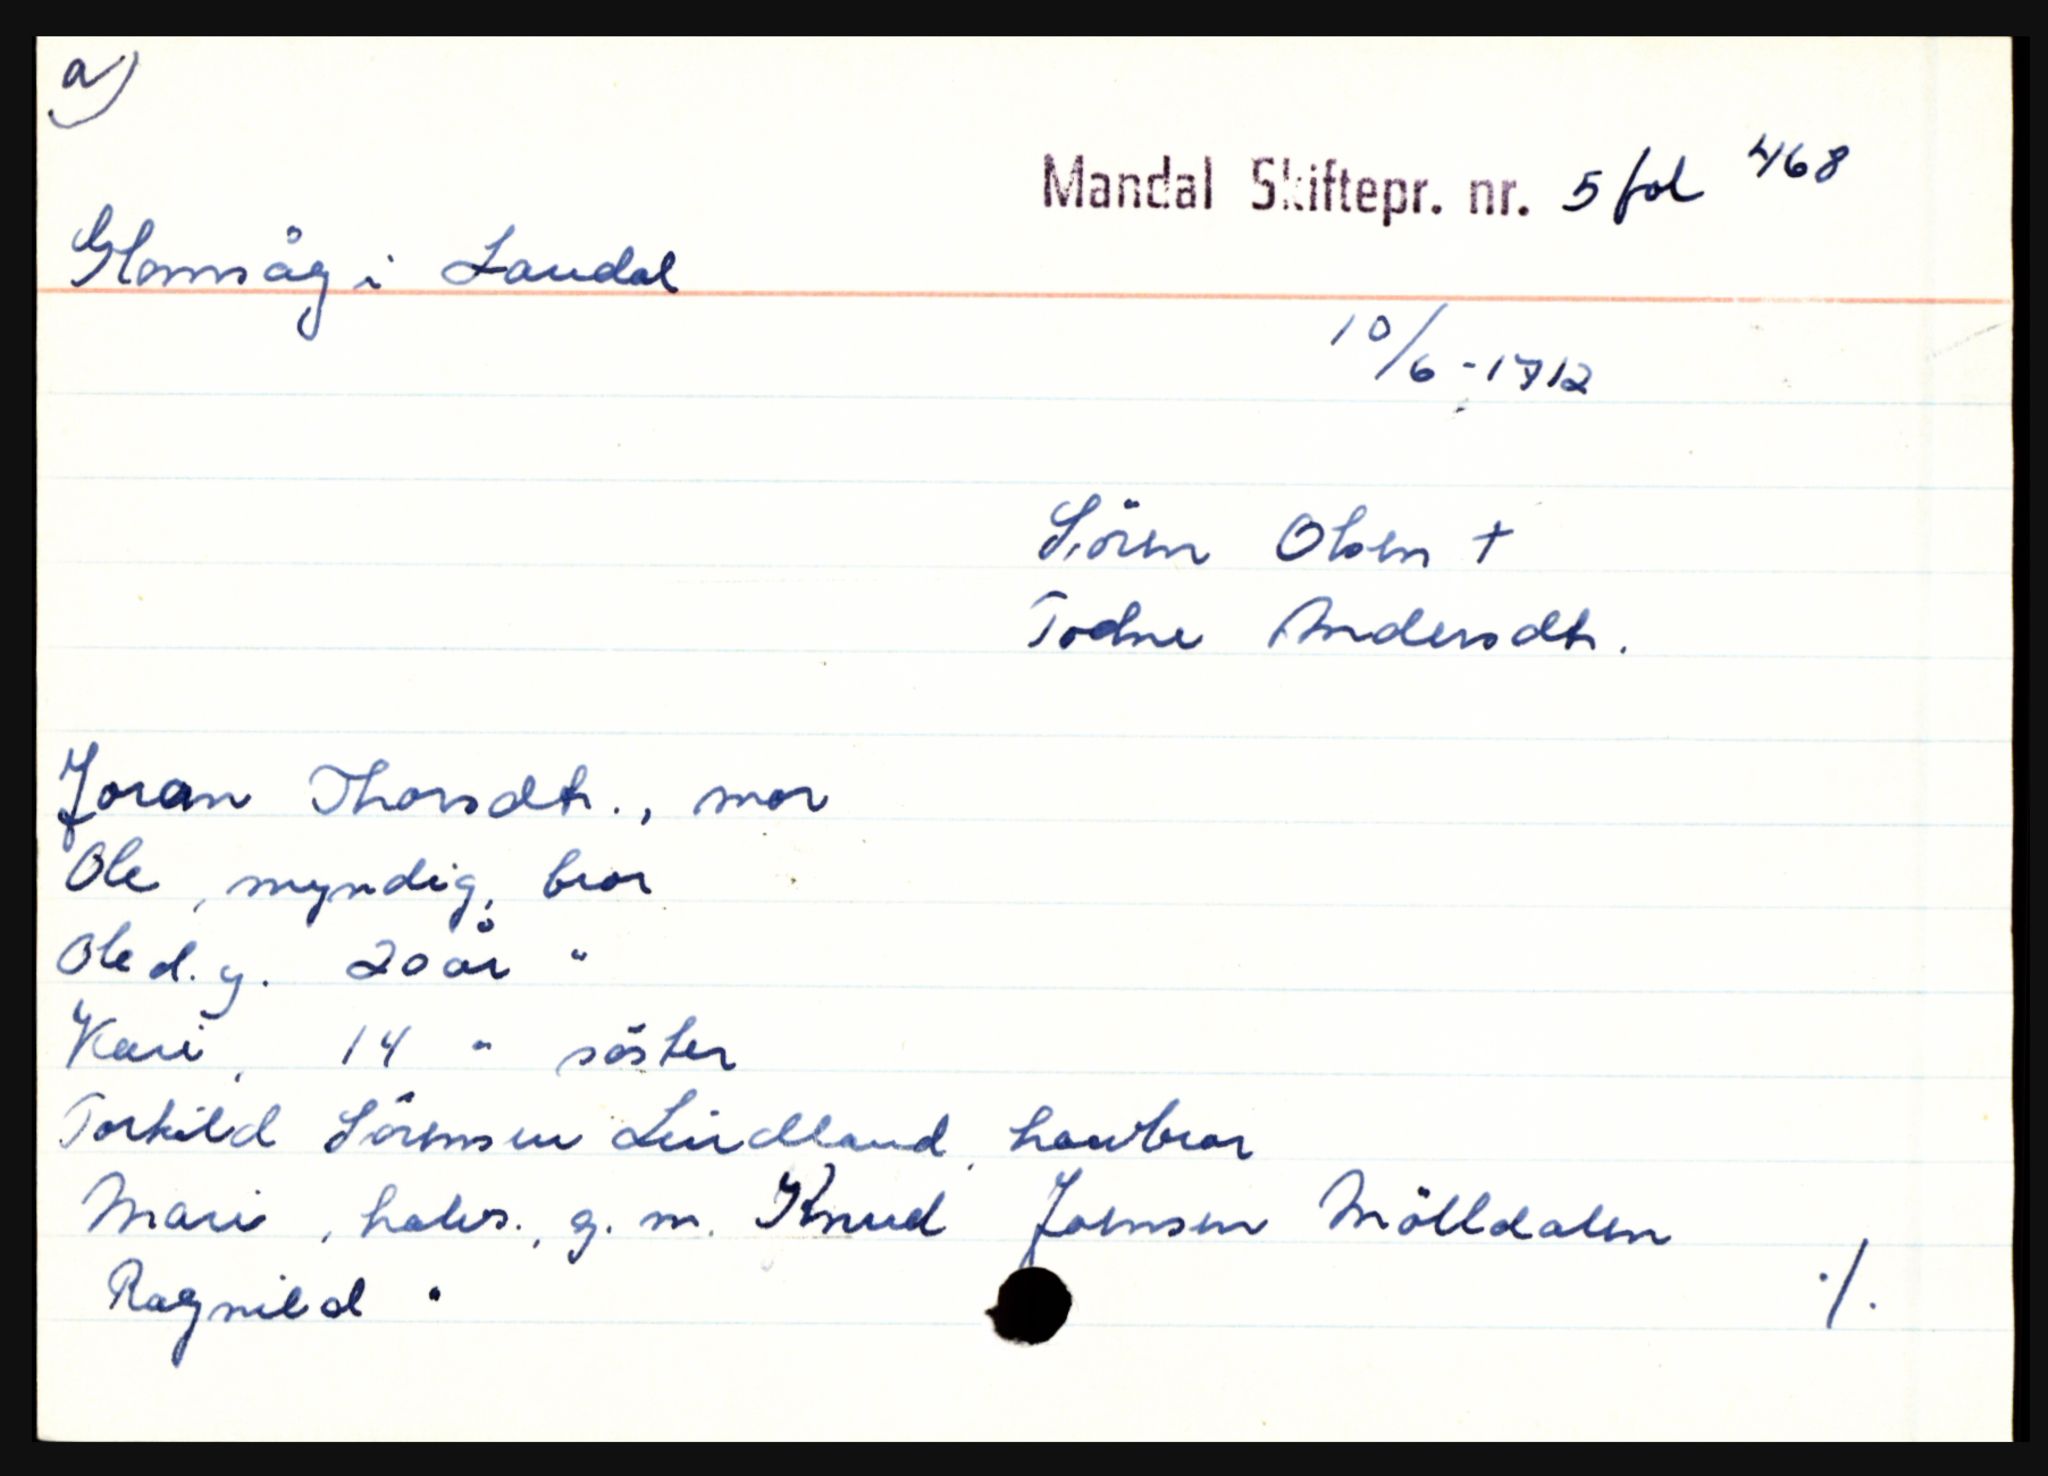 a)
Mandal Skiftepr. nr. 5 fol 468
Glomsåg i Laudal
10/6 - 1712
Sören Olsen +
Todne Andersdtr.
Joran Thorsdtr., mor
Ole, myndig, bror
Ole d. y. 20 år "
Kari, 14 " söster
Torkild Sörensen Lindland, havbror
Mari, halvs., g. m. Knud Joensen Mölldalen
Ragnild "
./.